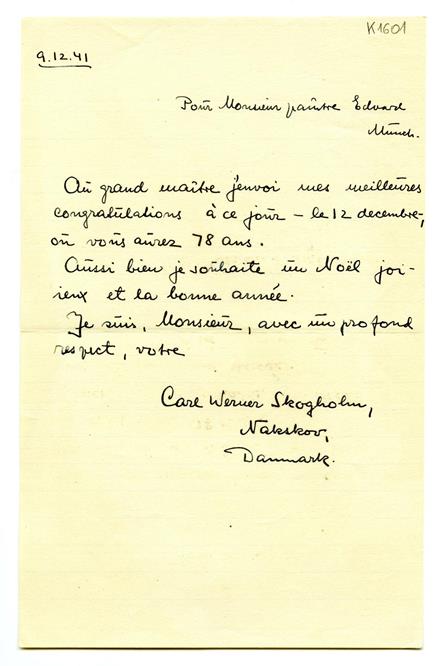 K1601
9.12.41
Pour Monsieur paintre Edvard
Munch.
Au grand maître j'envoi mes meilleures
congratulations à ce jour – le 12 decembre,
où vous aurez 78 ans.
Aussi bien je souhaite un Noël joi-
rieux et la bonne année.
Je suis, Monsieur, avec un profond
respect, votre
Carl Werner Skogholm,
Nakskov,
Danmark.